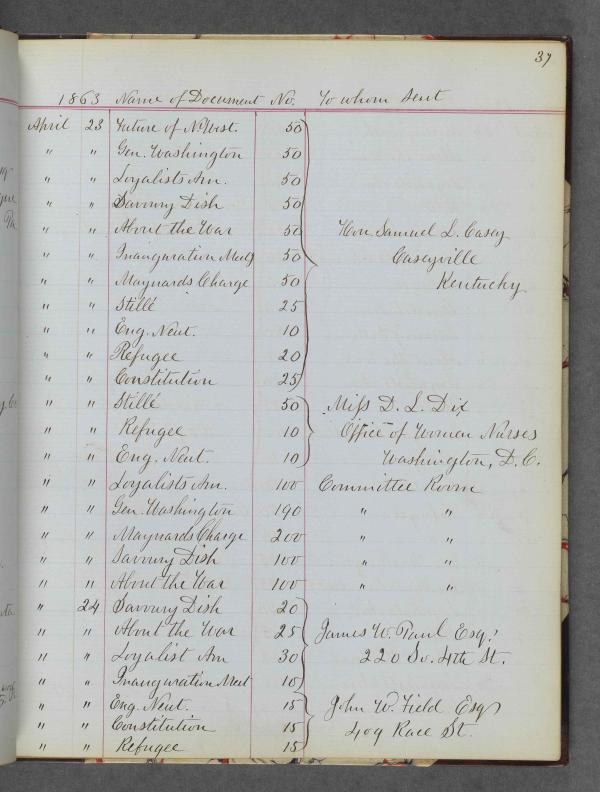 37
1863 Name of Document No. To whom Sent
April 23 Future of N. West. 50
" " Gen. Washington 50
" " Loyalists Am. 50
" " Savoury Dish 50
" " About the War 50 Hon Samuel L. Casey
" " Inauguration Meetg 50 Caseyville
" " Maynards Charge 50 Kentucky
" " Stillé 25
" " Eng. Neut. 10
" " Refugee 20
" " Constitution 25
" " Stillé 50 Miss D. L. Dix
" " Refugee 10 Office of Women Nurses
" " Eng. Neut. 10 Washington, D.C.
" " Loyalists Am. 100 Committee Room
" " Gen. Washington 190 " "
" " Maynards Charge 200 " "
" " Savoury Dish 100 " "
" " About the War 100 " "
" 24 Savoury Dish 20
" " About the War 25 James W. Paul Esq.
" " Loyalist Am 30 220 So. 4th St.
" " Inauguration Meet 10
" " Eng. Neut. 15 John W. Field Esq
" " Constitution 15 409 Race St.
" " Refugee 15